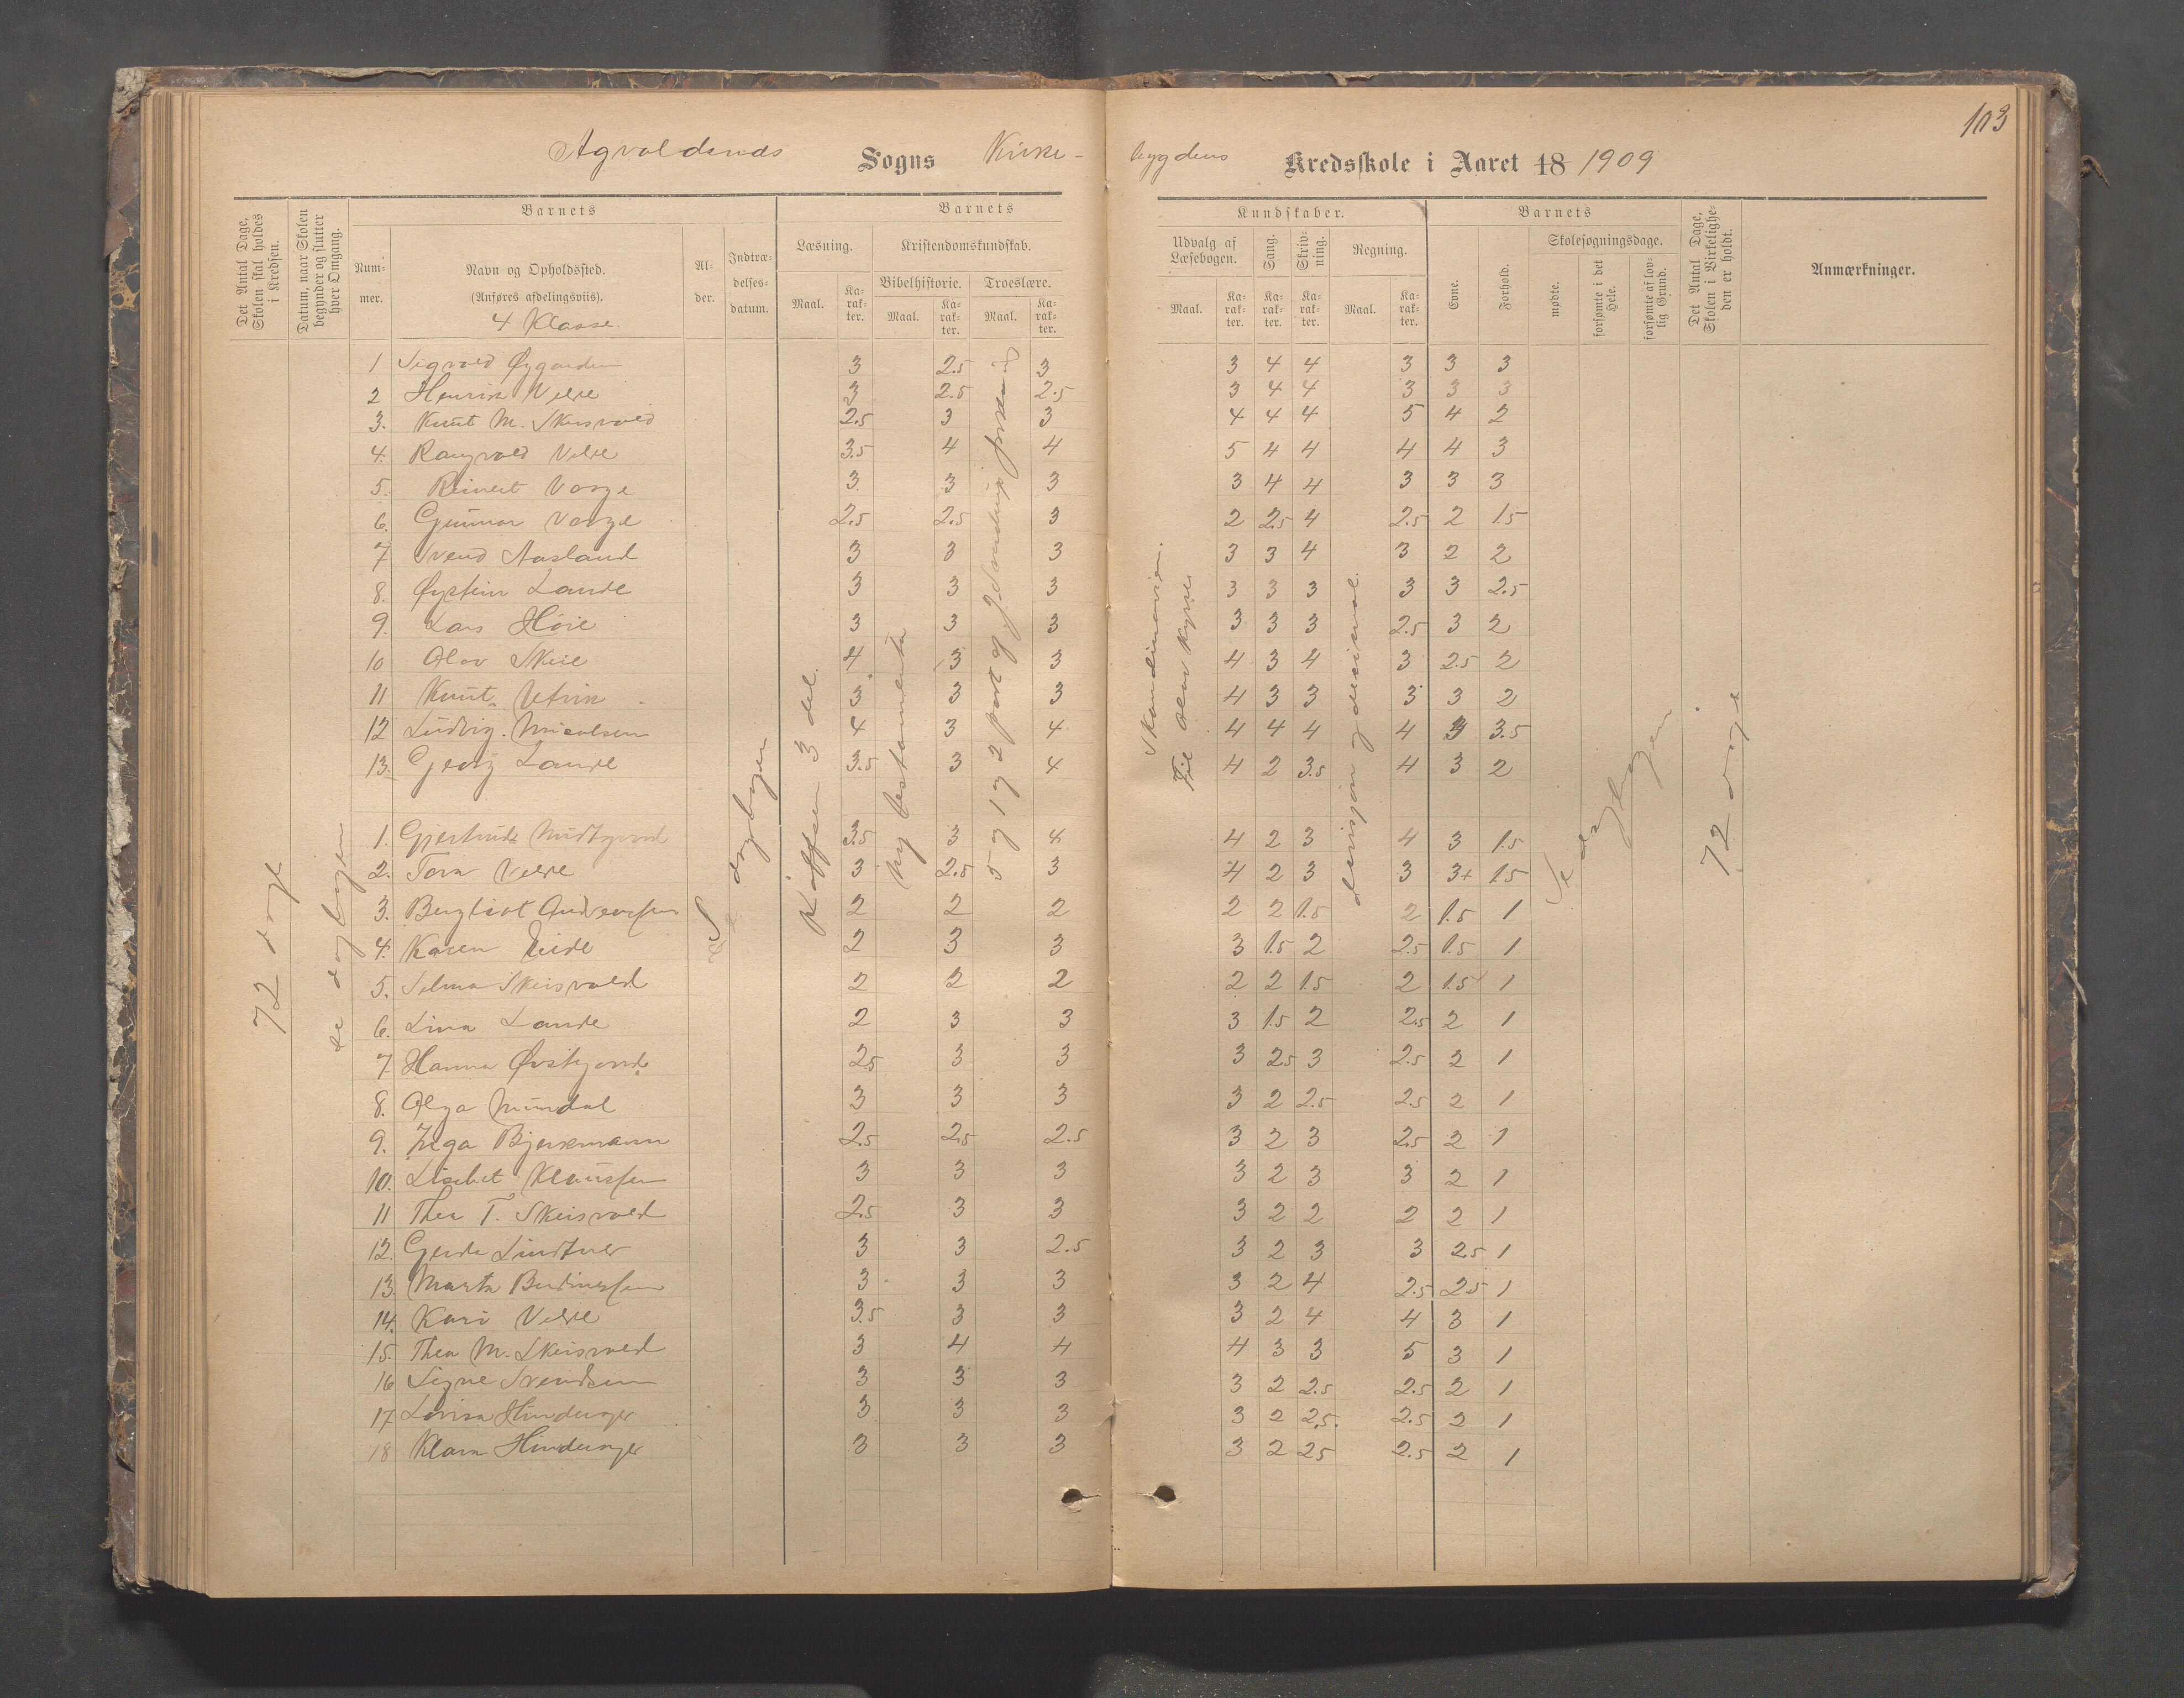 103
Sogns Kirke-
bygdens Kredsskole i Aaret 18 1909
Det Antal Dage, Skolen skal holdes i Kredsen.
Datum, naar Skolen begynder og slutter hver Omgang.
Barnets
Num-
mer.
Navn og Opholdssted.
(Anføres afdelingsviis).
4 Klasse
Al-
der.
Indtræ-
delses-
datum.
Barnets
Læsning.
Maal.
Ka-
rak-
ter.
Kristendomskundskab.
Bibelhistorie.
Maal.
Ka-
rak-
ter.
Troeslære.
Maal.
Ka-
rak-
ter.
Kundskaber.
Udvalg af
Læsebogen.
Maal.
Ka-
rak-
ter.
Sang.
Ka-
rak-
ter.
Skriv-
ning.
Ka-
rak-
ter.
Regning.
Maal.
Ka-
rak-
ter.
Barnets
Evne.
Forhold.
Skolesøgningsdage.
mødte.
forsømte i det
Hele.
forsømte af lov-
lig Grund.
Det Antal Dage,
Skolen i Virkelighe-
den er holdt.
Anmærkninger.
72 dage
se dagbogen
Se dagbogen
3 del.
Ny testamente
5 og 1 og 2 part af
Skandinavien.
Til
divisjon og desimal.
Se dagbogen
72 dage
1 Sigvald Øygarden 3 2.5 3 3 4 4 3 3 3
2 Henrik Velde 3 2.5 2.5 3 4 4 3 3 3
3. Knut M. Skeisvold 2.5 3 3 4 4 4 5 4 2
4. Rangvald Velde 3.5 4 4 5 4 4 4 4 3
5. Reinert Vaage 3 3 3 3 4 4 3 3 3
6. Gunnar Vaage 2.5 2.5 3 2 2.5 4 2.5 2 1.5
7 Svend Aasland 3 3 3 3 3 4 3 2 2
8. Øystein Lande 3 3 3 3 3 3 3 3 2.5
9. Lars Høie 3 3 3 3 3 3 2.5 3 2
10 Olav Skeie 4 3 3 4 3 4 3 2.5 2
11 Knut 3 3 3 4 3 3 3 3 2
12 Ludvig 4 3 4 4 4 4 4 3.5
13. Georg Lande 3.5 3 4 4 2 3.5 4 3 2
1. Gjertrude 3.5 3 4 4 2 3 4 3 1.5
2. Tora Velde 3 2.5 3 4 2 3 3 3+ 1.5
3. Bergliot Andreassen 2 2 2 2 2 1.5 2 1.5 1
4. Karen Eide 2 3 3 3 1.5 2 2.5 1.5 1
5. Selma Skeisvold 2 2 2 2 2 1.5 2 1.5 1
6. Lina Lande 2 3 3 3 1.5 2 2.5 2 1
7. Hanna 2.5 3 3 3 2.5 3 2.5 2 1
8. Olga Mundal 3 3 3 3 2 2.5 2.5 2 1
9. Inga Bjerkmann 2.5 2.5 2.5 3 2 3 2.5 2 1
10. Lisebet Klaussen 3 3 3 3 2 3 3 2 1
11 Thea T. Skeisvold 2.5 3 3 3 2 2 2 2 1
12. Gerda Lindtner 3 3 2.5 3 2 3 3 2.5 1
13. Marta Berdinessen 3 3 3 3 2 4 2.5 2.5 1
14. Kari Velde 3.5 3 3 3 2 4 4 3 1
15. Thea M. Skeisvold 3 4 4 4 3 3 5 3 1
16 Signe Svendsen 3 3 3 3 2 2.5 2.5 2 1
17 Lovisa Hinderager 3 3 3 3 2 2.5. 2.5 2 1
18 Klara Hinderager 3 3 3 3 2 25 2.5 2 1